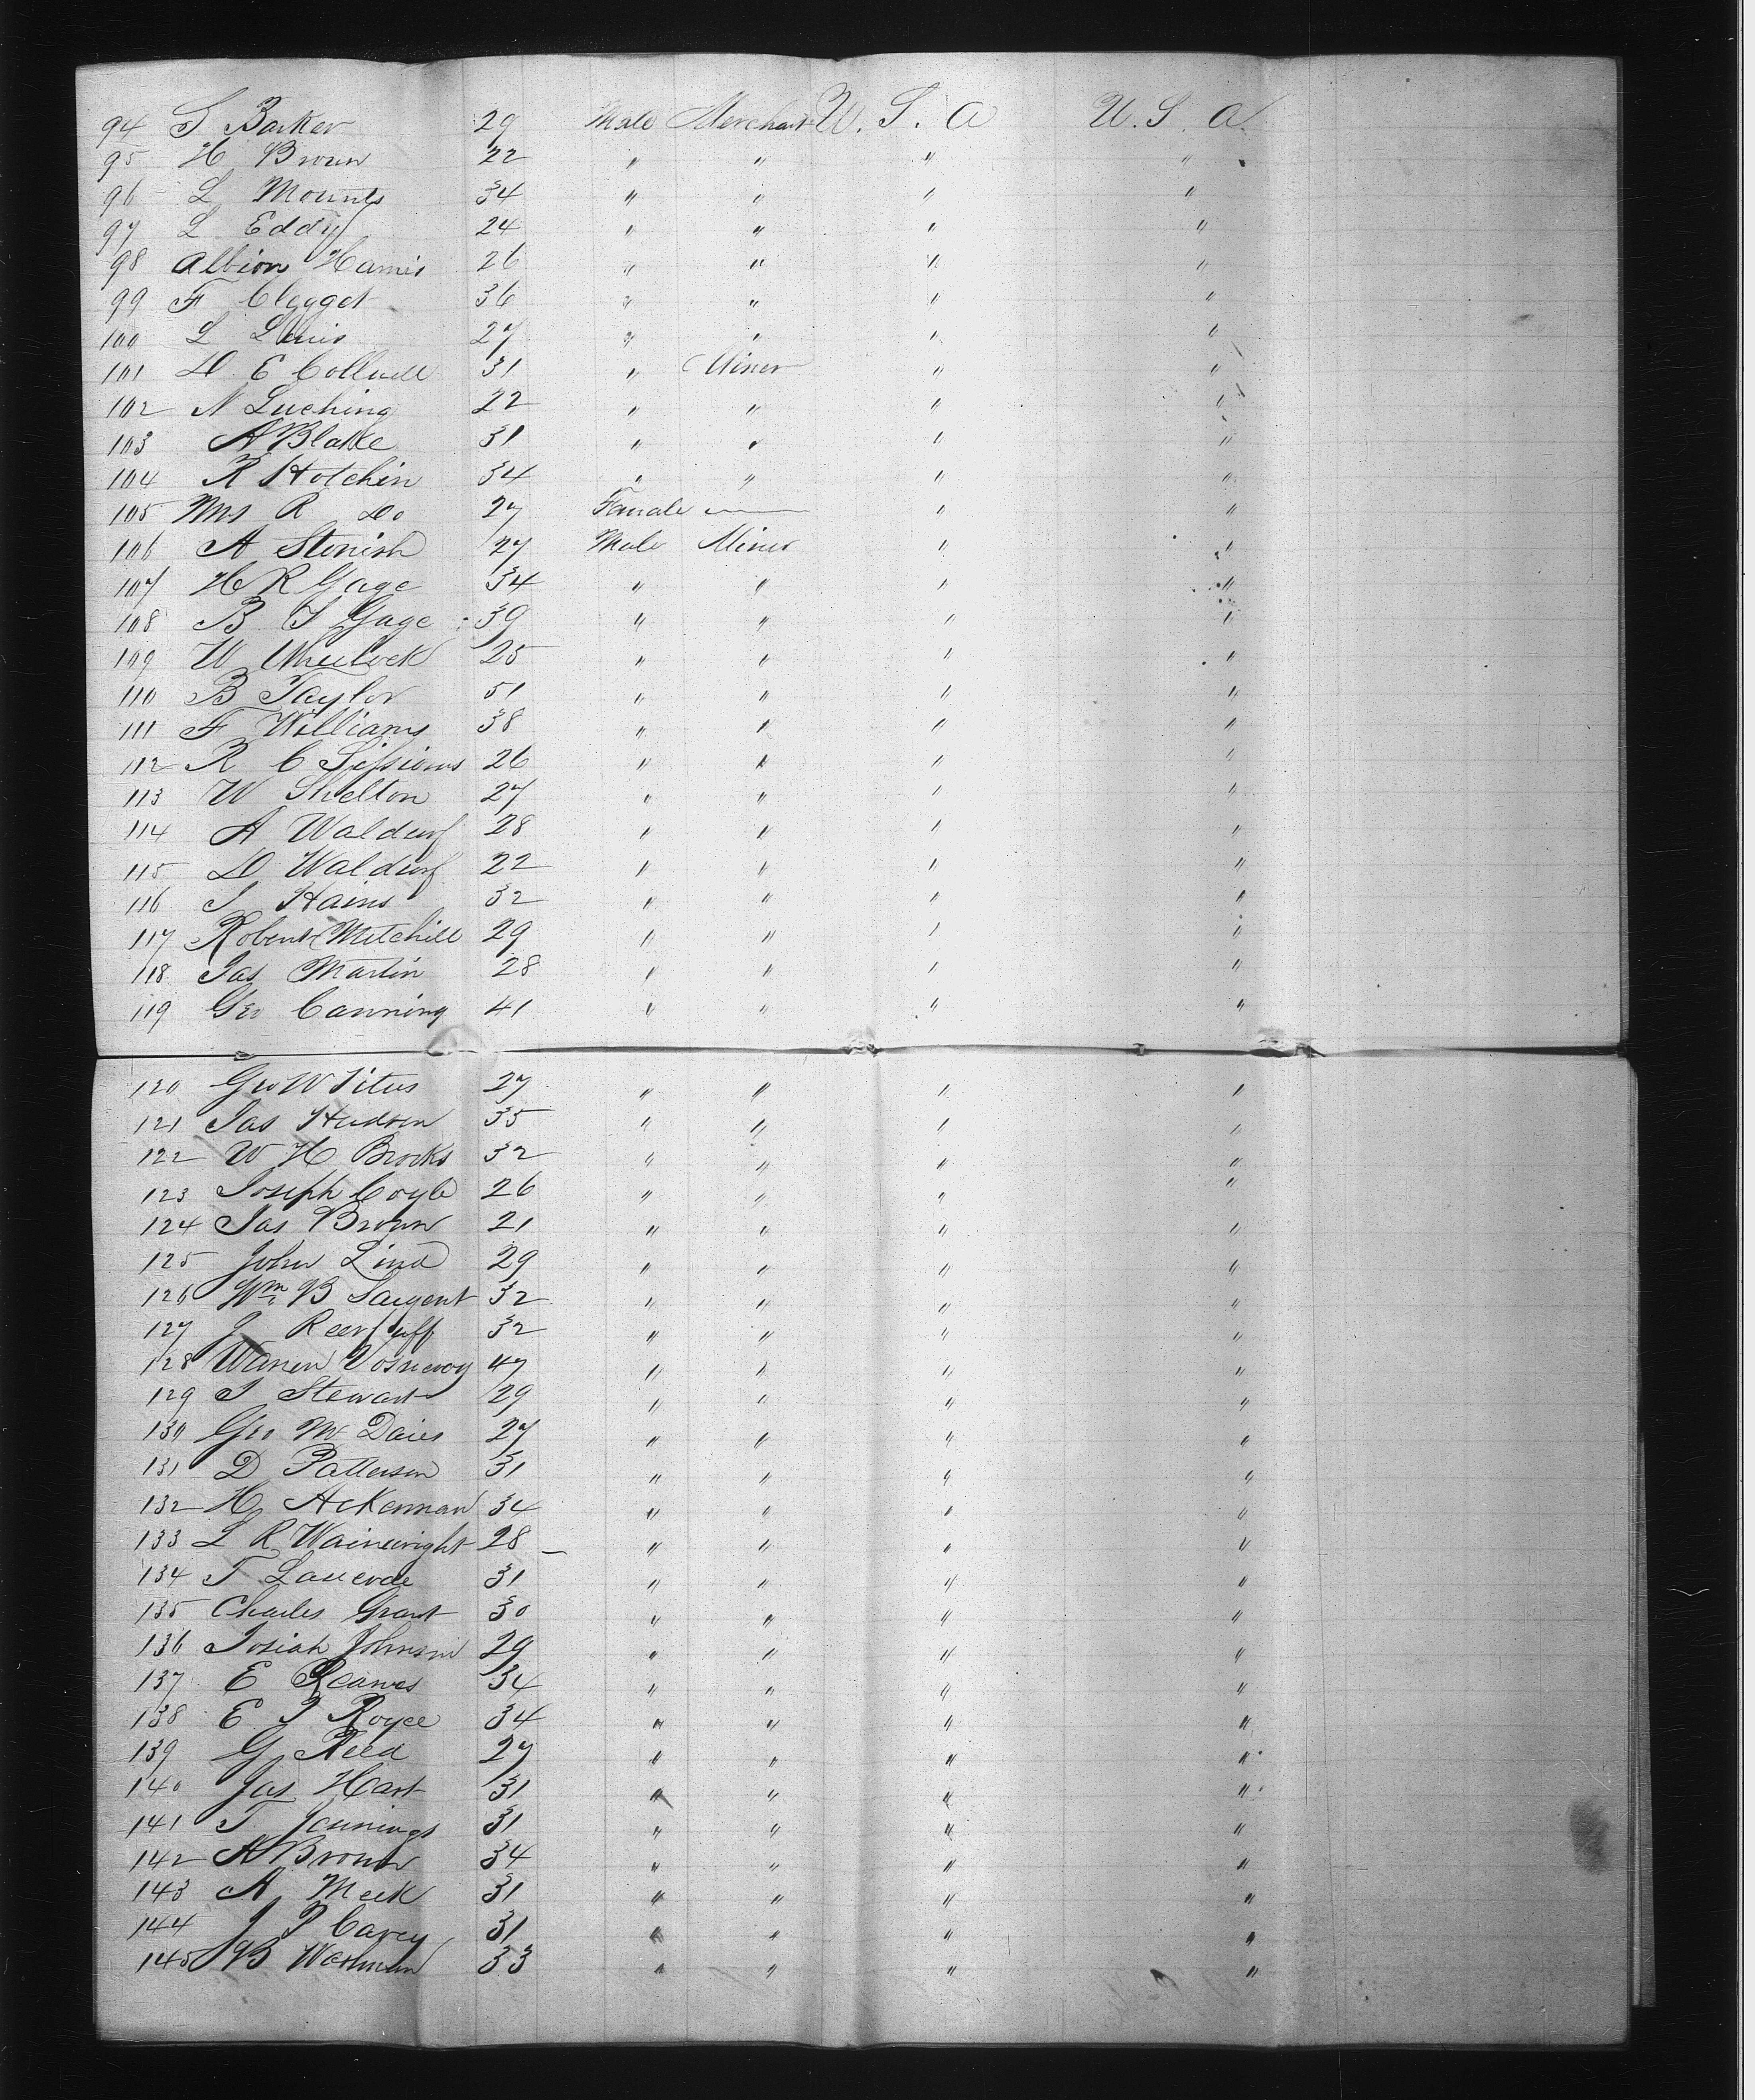 94 S Barker 29 Male Merchant U. S. A U. S. A.
95 H Brown 22 " " " "
96 L Mounts 34 " " " "
97 L Eddy 24 " " " "
98 Albion Harris 26 " " " "
99 F Clegget 36 " " " "
100 L 27 " " " "
101 D E Collwell 31 " Miner " "
102 N Luching 22 " " " "
103 A Blake 31 " " " "
104 R Hotchin 34 " " " "
105 Mrs R Do 27 Female — " "
106 A Stenish 27 Male Miner " "
107 H R Gage 34 " " " "
108 B S Gage 39 " " " "
109 W Wheelock 25 " " " "
110 B Taylor 51 " " " "
111 F Williams 38 " " " "
112 R C Sissions 26 " " " "
113 W Shelton 27 " " " "
114 A Waldurf 28 " " " "
115 D Waldurf 22 " " " "
116 J Hains 32 " " " "
117 Robert Mitchill 29 " " " "
118 Jas Martin 28 " " " "
119 Geo Canning 41 " " " "
120 Geo W Titus 27 " " " "
121 Jas Hudson 35 " " " "
122 W H Brooks 32 " " " "
123 Joseph Coyle 26 " " " "
124 Jas Brown 21 " " " "
125 John Lind 29 " " " "
126 Wm B Sargent 32 " " " "
127 J 32 " " " "
128 Warren 47 " " " "
129 J Stewart 29 " " " "
130 Geo M Daies 27 " " " "
131 D Patterson 31 " " " "
132 H Ackerman 34 " " " "
133 L R Wainwright 28 " " " "
134 T 31 " " " "
135 Charles Grant 30 " " " "
136 Josiah Johnson 29 " " " "
137 E Reaves 34 " " " "
138 E J Royce 34 " " " "
139 G Reed 27 " " " "
140 Jas Hart 31 " " " "
141 T Jennings 31 " " " "
142 A Brown 34 " " " "
143 A Meek 31 " " " "
144 J P Carey 31 " " " "
145 B Workman 33 " " " "